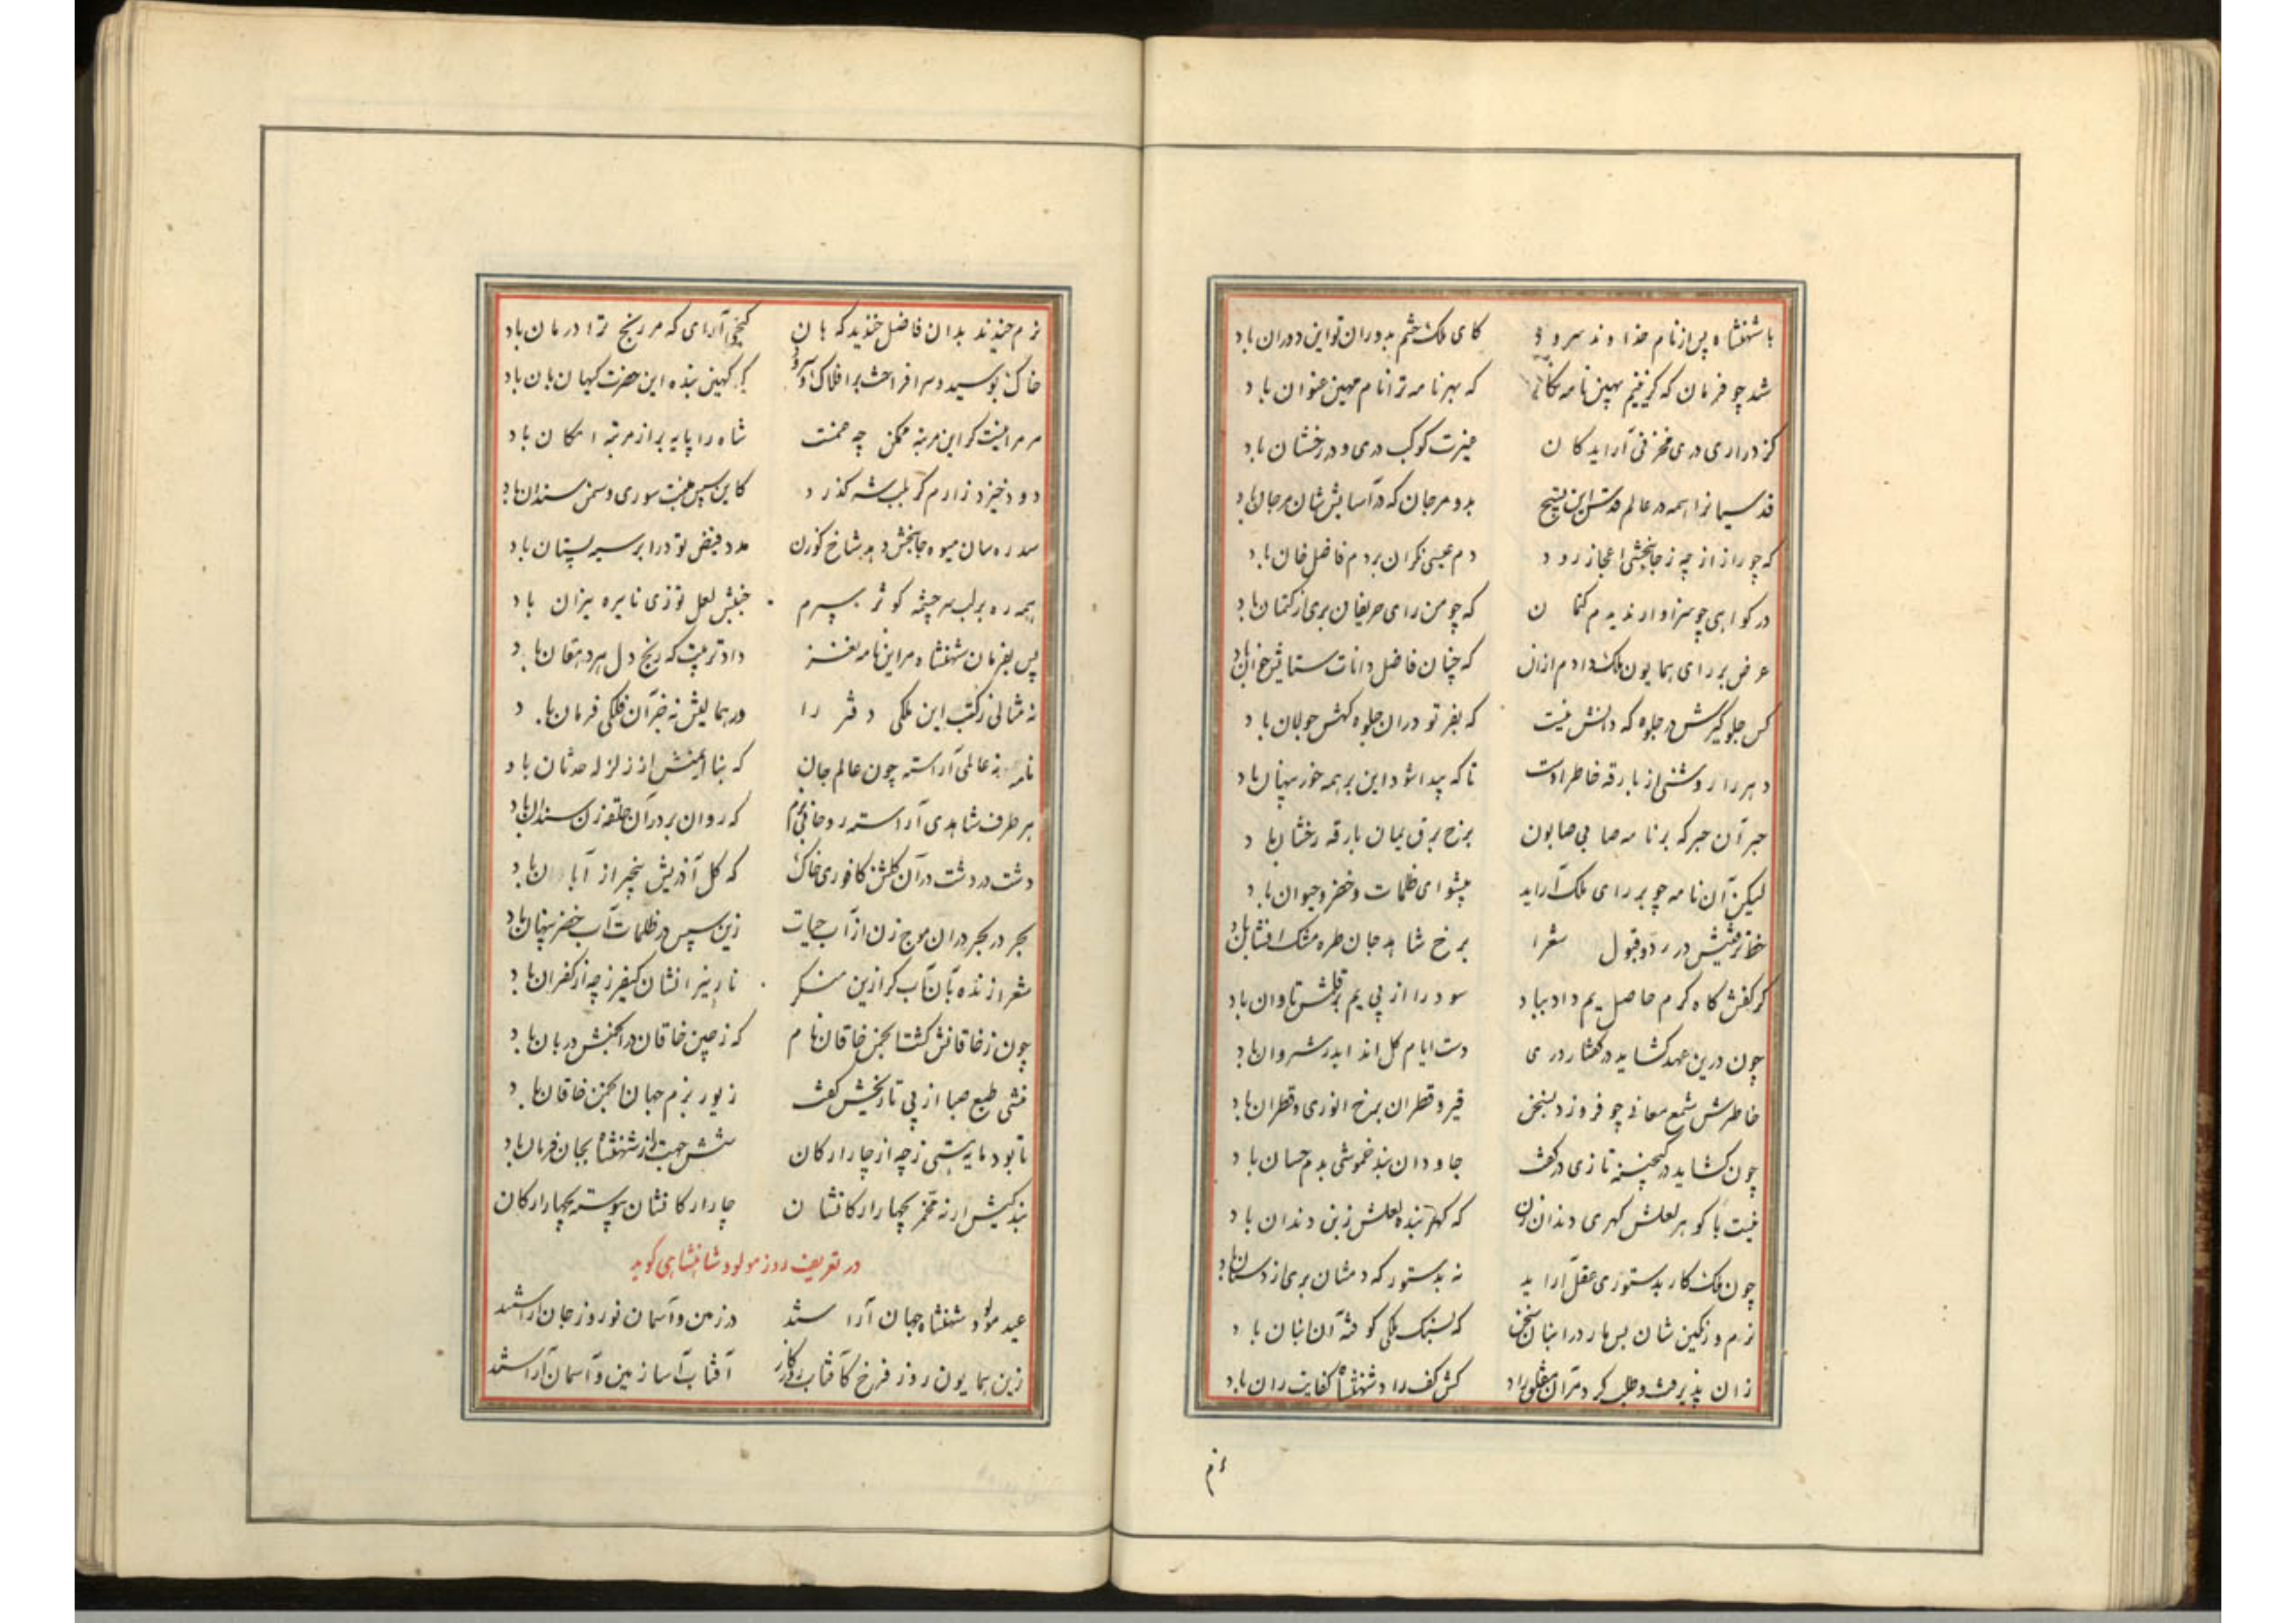 با شهنشاه پس از نام خداوند سرود کای ملک حشم بدوران تو این دوران باد
شد چو فرمان که گزینم بهین نامه که بهر نامه ترا نام مهین عنوان باد
کز دراری دری مخزنی آراید کان کوکب دری و در رخشان باد
قدسیانرا همه در عالم قدس این تسبیح بدو مرجان که در آسایش شان مرجان باد
که چو راز از چه ز جانبخشی اعجاز رود دم عیسی نگران بر دم فاضل خان باد
در گواهی چو سزاوار ندیدم کتمان که چو من رای حریفان بری از کتمان باد
عرض بر رای همایون ملک دادم ازان که چنان فاضل دانات ستایش خوان باد
کس جلوگیرش در جلوه که دانش نیست که بفر تو دران جلوه گهش جولان باد
دهر را روشنی از بارقه خاطر اوست تا که پیدا شود این بر همه خور پنهان باد
حبر آن حبر که بر نامه صابی صابون برخ برق یمان بارقه رخشان باد
لیکن آن نامه چو بر رای ملک آراید پیشوای ظلمات و خضر و حیوان باد
خط ترقینش در رد و قبول شعرا برخ شاهد جان طره مشک افشان باد
گر کفش گاه کرم حاصل یم داد بباد سود را از پی یم بر قلمش تاوان باد
چون درین عهد گشاید در گفتار دری دست ایام گل اندای در شروان باد
خاطرش شمع معانی چو فروزد بسخن قیر و قطران برخ انوری و قطران باد
چون گشاید در گنجینه تازی در گفت جاودان بند خموشی بدم حسان باد
نیست با گوهر لعلش گهری دندان زن که کهتر بنده لعلش زبن دندان باد
چون ملک کار بدستوری عقل آراید نه بدستور که دمشان بری از دستان باد
نرم و رنگین شان بس هار در انبان سخن که بسنگ ملکی کوفته آن انبان باد
زان پذیرفت و طلب کرد مر آن مفلق راد کش کف راد شهنشاه کفایت ران باد
نرم خندید بدان فاضل خندید که هان گنجی آرای که مر رنج ترا درمان باد
خاک بوسید و سر افراخت بر افلاک و سرود که کهین بنده این حضرت کیهان بان باد
مر مرا نیست گر این مرتبه ممکن چه غمست شاه را پایه بر از مرتبه امکان باد
دود خیزد زارم گر بلب شه گذرد کاین سپس منبت سوری و سمن سندان باد
سدره سان میوه جانبخش دهد شاخ گوزن مدد فیض تو در ابر سیه پستان باد
همه ره بر لب سرچشمه کوثر سپرم جنبش لعل تو زی نایره یزان باد
پس بفرمان شهنشاه مر این نامه نغز داد ترتیب که رنج دل هر دهقان باد
نه مثالی ز کتب این ملکی دفتر را در همالیش نه جز آن فلکی فرمان باد
نامه نه عالمی آراسته چون عالم جان که بنا ایمنش از زلزله حدثان باد
هر طرف شاهدی آراسته روحانی که روان بر در آن حلقه زن سندان باد
دشت در دشت در آن گلشن کافوری خاک که گل آفرینش باد
بحر در بحر دران موج زن از آب حیات زین سپس در ظلمات آب خضر پنهان باد
شعر از نده بآن آب گر ازین منکر نار نیرانشان کیفر ز چه از کفران باد
چون ز خاقانش گشت انجمن خاقان نام که ز چین خاقان در انجمنش دربان باد
منشی طبع صبا از پی تاریخش گفت زیور بزم جهان انجمن خاقان باد
تا بود مایه هستی ز چه از چار ارکان شش جهت از شهنشاه بجان فرمان باد
بندگیش ارنه مخمر بچهار ارکانشان چار ارکانشان پیوسته بچهار ارکان
در تعریف روز مولود شاهنشاهی گوید
عید مولود شهنشاه جهان آرا شد در زمین و آسمان نوروز جان آرا شد
زین همایون روز فرخ کآفتاب روزگار آفتاب آسا زمین و آسمان آرا شد
نرم